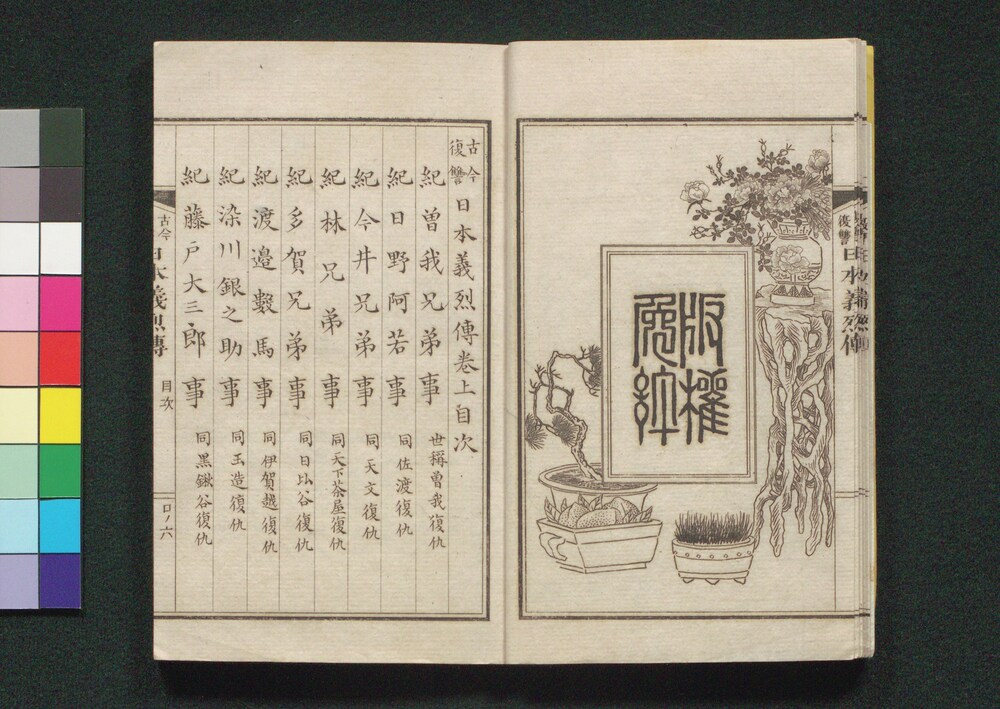 版權
免許
復讐
日本義烈傳
古今
復讐
日本義烈傳卷上目次
紀曽我兄弟事
世稱曽我復仇
紀日野阿若事
同佐渡復仇
紀今井兄弟事
同天文復仇
紀林兄弟事
同天下茶屋復仇
紀多賀兄弟事
同日比谷復仇
紀渡邉數馬事
同伊賀越復仇
紀染川銀之助事
同玉造復仇
紀藤戸大三郎事
同黒鍬谷復仇
古今
日本義烈傳
目次
口ノ六